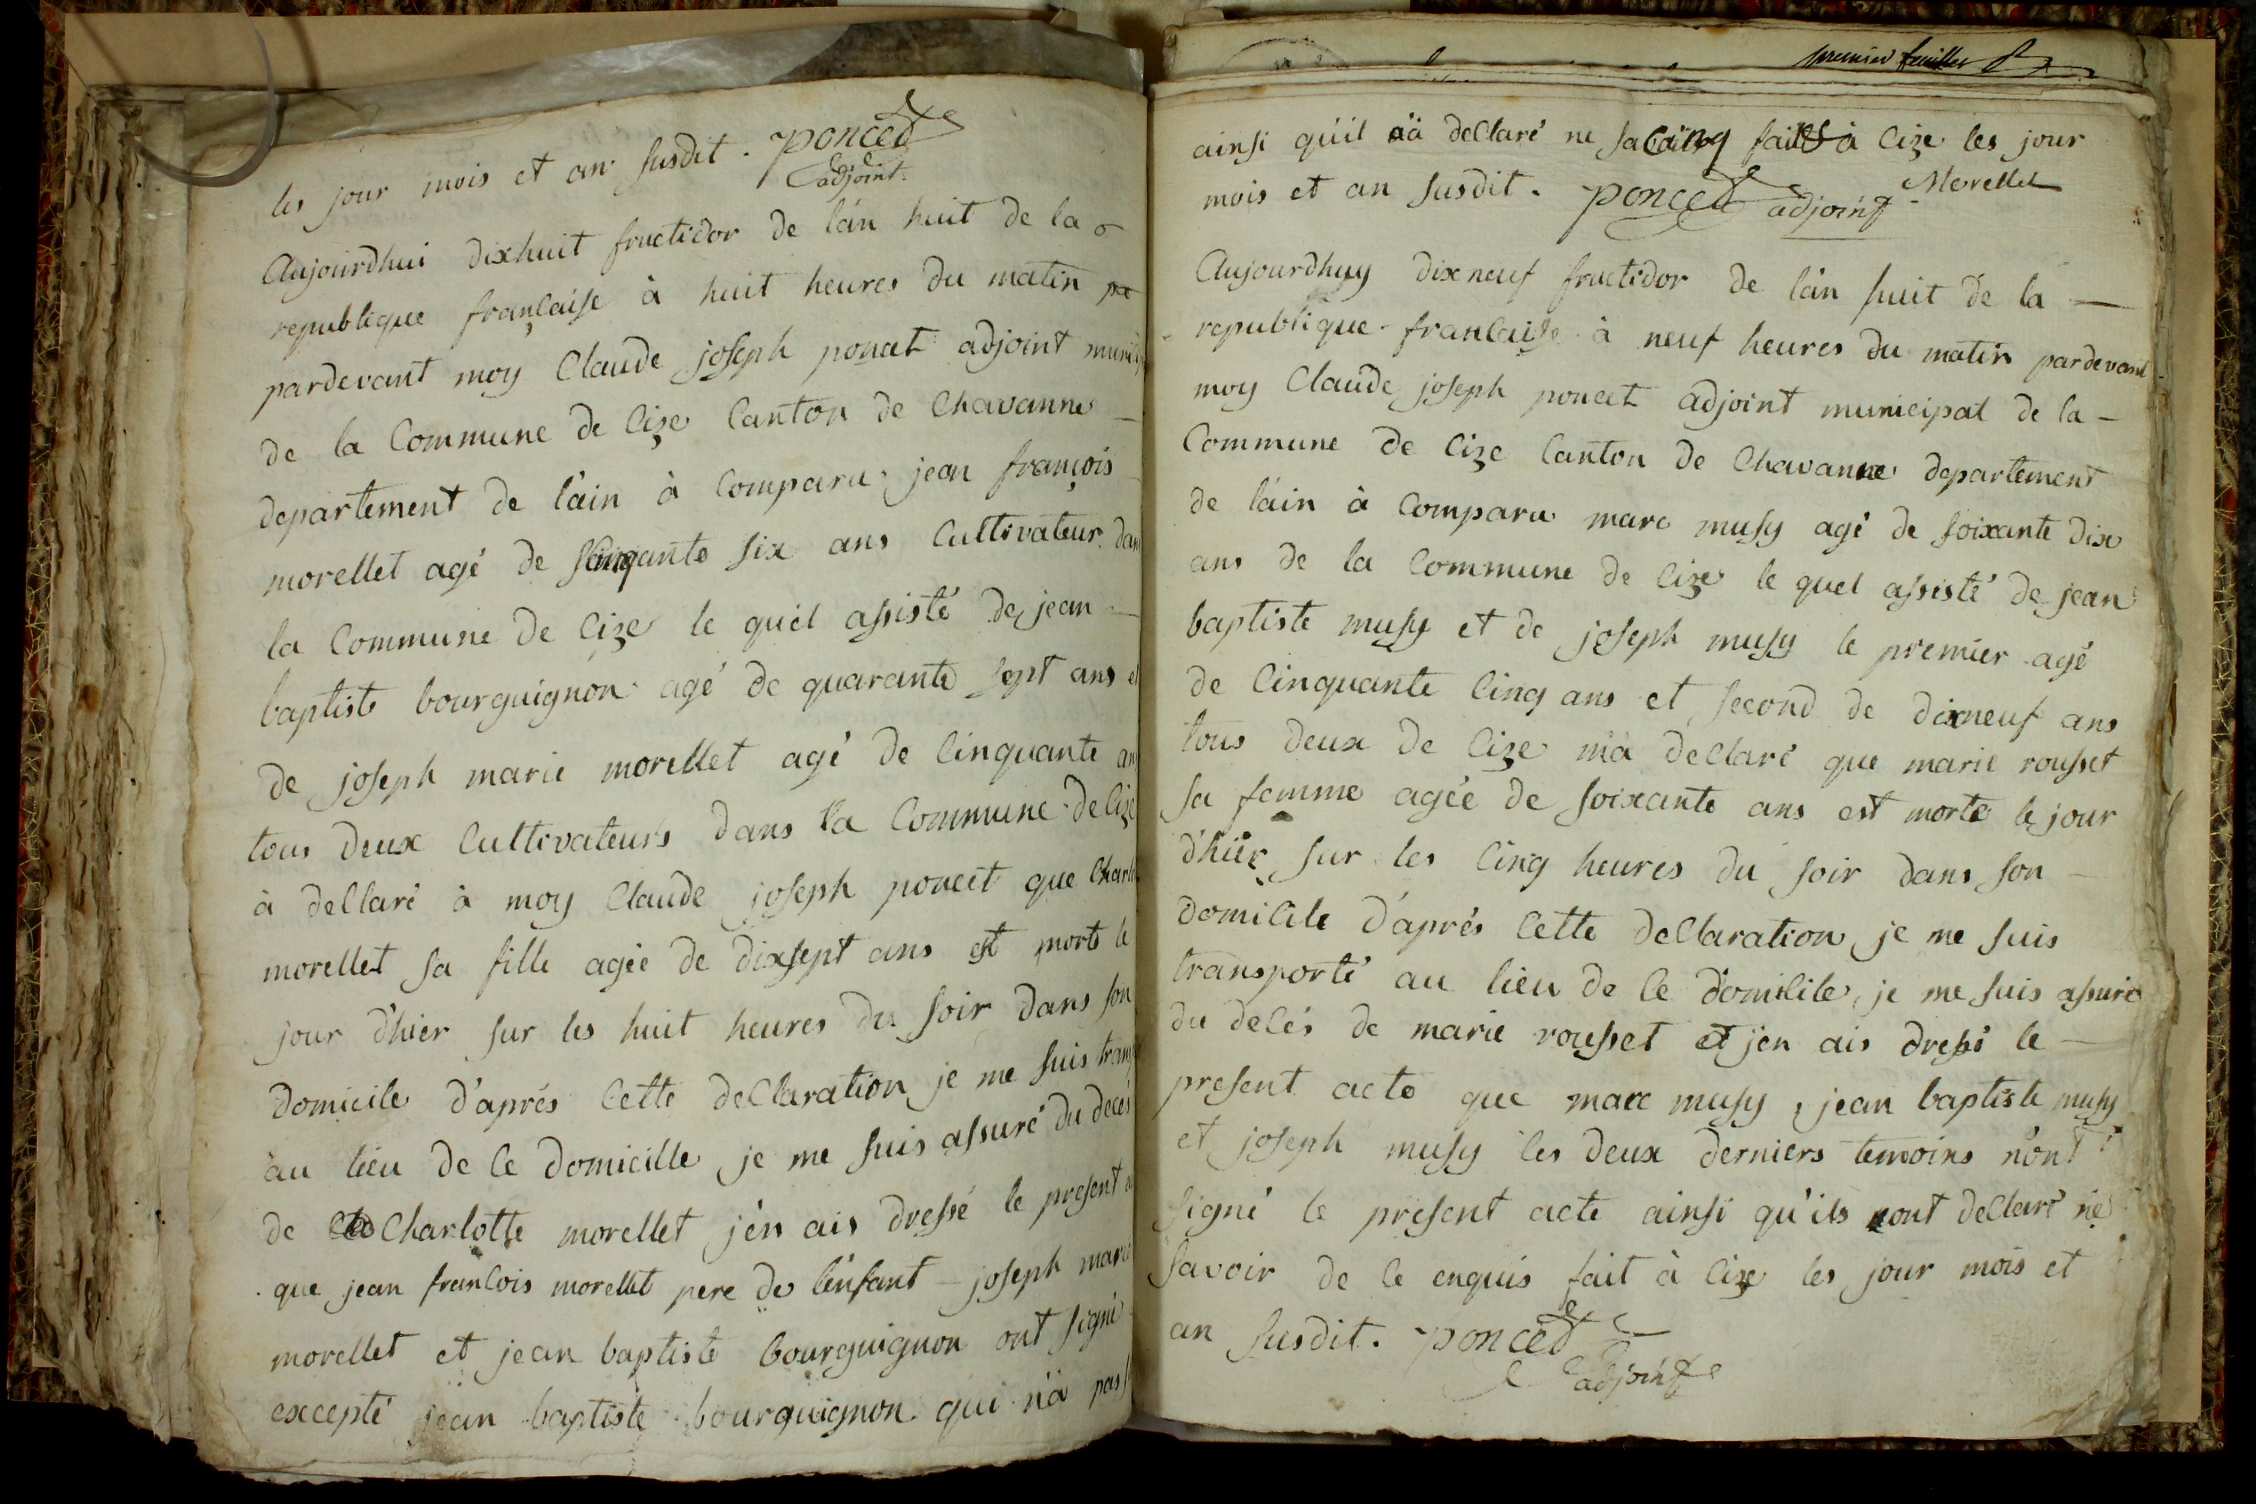 les jour mois et an susdit. poncet
adjoint.
Aujourdhui dixhuit fructidor de l'an huit de la
republique française à huit heures du matin
pardevant moy Claude joseph poncet adjoint
de la Commune de Cize Canton de Chavanne
departement de l'ain à Comparu jean françois
morellet agé de Cinquante six ans Cultivateur dans
la Commune de Cize le quel assisté de jean
baptiste bourguignon agé de quarante sept ans et
de joseph marie morellet agé de Cinquante ans
tous deux Cultivateurs dans la Commune de Cize
à declaré à moy Claude joseph poncet que
morellet sa fille agée de dixsept ans est morte le
jour d'hier sur les huit heures du soir dans son
domicile d'aprés Cette declaration je me suis
au lieu de Ce domicille je me suis assuré du decés
de Charlotte morellet j'en ais dressé le present
que jean francois morellet pere de l'enfant joseph marie
morellet et jean baptiste bourguignon ont signé
excepté jean baptiste bourguignon qui n'a pas
premier feuillet
ainsi qu'il a declaré ne fait à Cize les jour
mois et an susdit. poncet adjoint Morellet
Aujourdhuy dixneuf fructidor de l'an huit de la
republique francaise à neuf heures du matin pardevant
moy Claude joseph poncet adjoint municipal de la
Commune de Cize Canton de Chavanne departement
de l'ain à Comparu marc musy agé de soixante dix
ans de la Commune de Cize le quel assisté de jean
baptiste musy et de joseph musy le premier agé
de Cinquante Cinq ans et second de dixneuf ans
tous deux de Cize m'a declaré que marie rousset
sa femme agée de soixante ans est morte le jour
d'hier sur les Cinq heures du soir dans son
domicile d'aprés Cette declaration je me suis
transporté au lieu de Ce domicile, je me suis assuré
du decés de marie rousset et j'en ais dressé le
present acte que marc musy, jean baptiste musy
et joseph musy les deux derniers temoins n'ont
signé le present acte ainsi qu'ils ont declaré ne
savoir de Ce enquis fait à Cize les jour mois et
an susdit. poncet
adjoint